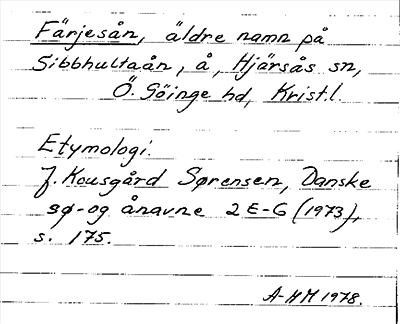 Färjesån, äldre namn på
Sibbhultaån, å, Hjärsås sn,
Ö. Göinge hd, Krist.l.
Etymologi.
J. Kousgård Sørensen, Danske
sø- og ånavne 2 E-G (1973),
s. 175.
A-MM 1978.